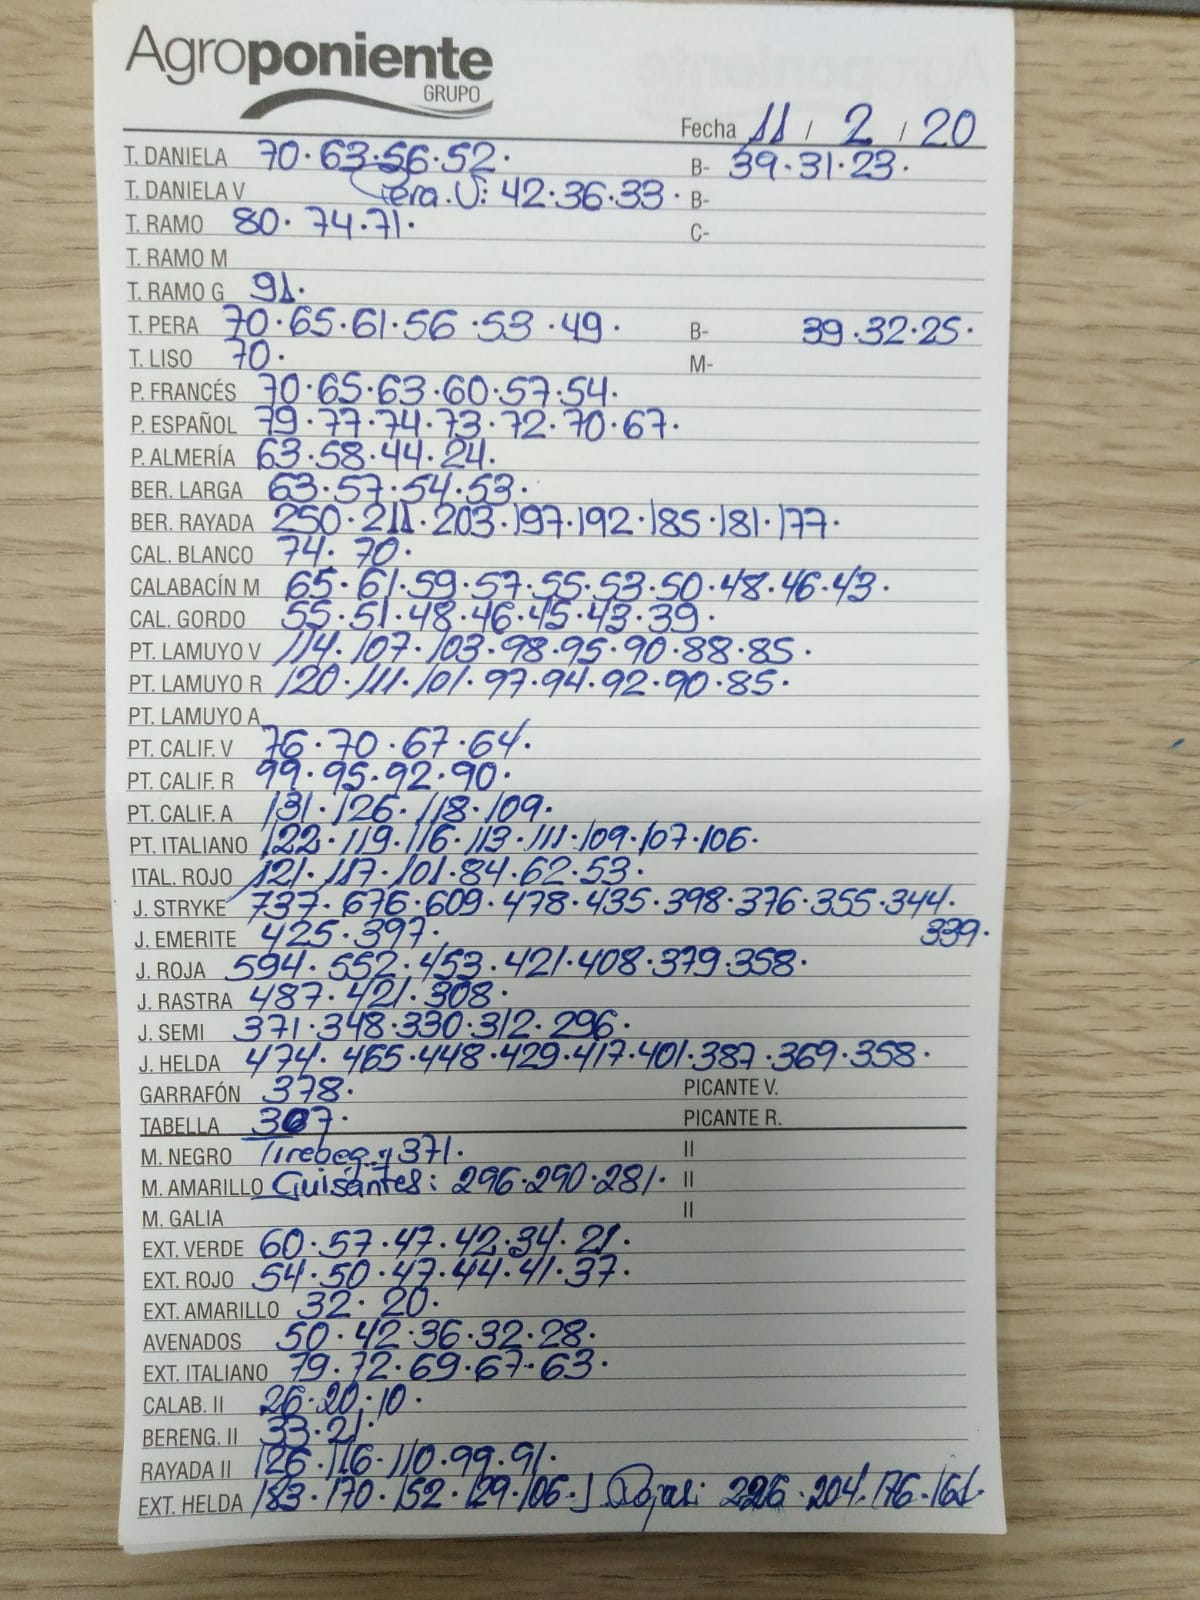 Agroponiente
GRUPO
Fecha 11 / 2 / 20
T. DANIELA 70·63·56·52· B- 39·31·23·
T. DANIELA V Pera.V: 42·36·33· B-
T. RAMO 80·74·71· C-
T. RAMO M
T. RAMO G 91·
T. PERA 70·65·61·56·53·49· B- 39·32·25·
T. LISO 70· M-
P. FRANCÉS 70·65·63·60·57·54·
P. ESPAÑOL 79·77·74·73·72·70·67·
P. ALMERÍA 63·58·44·24·
BER. LARGA 63·57·54·53·
BER. RAYADA 250·211·203·197·192·185·181·177·
CAL. BLANCO 74·70·
CALABACÍN M 65·61·59·57·55·53·50·48·46·43·
CAL. GORDO 55·51·48·46·45·43·39·
PT. LAMUYO V 114·107·103·98·95·90·88·85·
PT. LAMUYO R 120·111·101·97·94·92·90·85·
PT. LAMUYO A
PT. CALIF. V 76·70·67·64·
PT. CALIF. R 99·95·92·90·
PT. CALIF. A 131·126·118·109·
PT. ITALIANO 122·119·116·113·111·109·107·106·
ITAL. ROJO 121·117·101·84·62·53·
J. STRYKE 737·676·609·478·435·398·376·355·344·
339·
J. EMERITE 425·397·
J. ROJA 594·552·453·421·408·379·358·
J. RASTRA 487·421·308·
J. SEMI 371·348·330·312·296·
J. HELDA 474·465·448·429·417·401·387·369·358·
GARRAFÓN 378· PICANTE V.
TABELLA 307· PICANTE R.
M. NEGRO 371· II
M. AMARILLO Guisantes: 296·290·281· II
M. GALIA II
EXT. VERDE 60·57·47·42·34·21·
EXT. ROJO 54·50·47·44·41·37·
EXT. AMARILLO 32·20·
AVENADOS 50·42·36·32·28·
EXT. ITALIANO 79·72·69·67·63·
CALAB. II 26·20·10·
BERENG. II 33·21·
RAYADA II 126·116·110·99·91·
EXT. HELDA 183·170·152·129·106·J Rojas: 226·204·176·161·